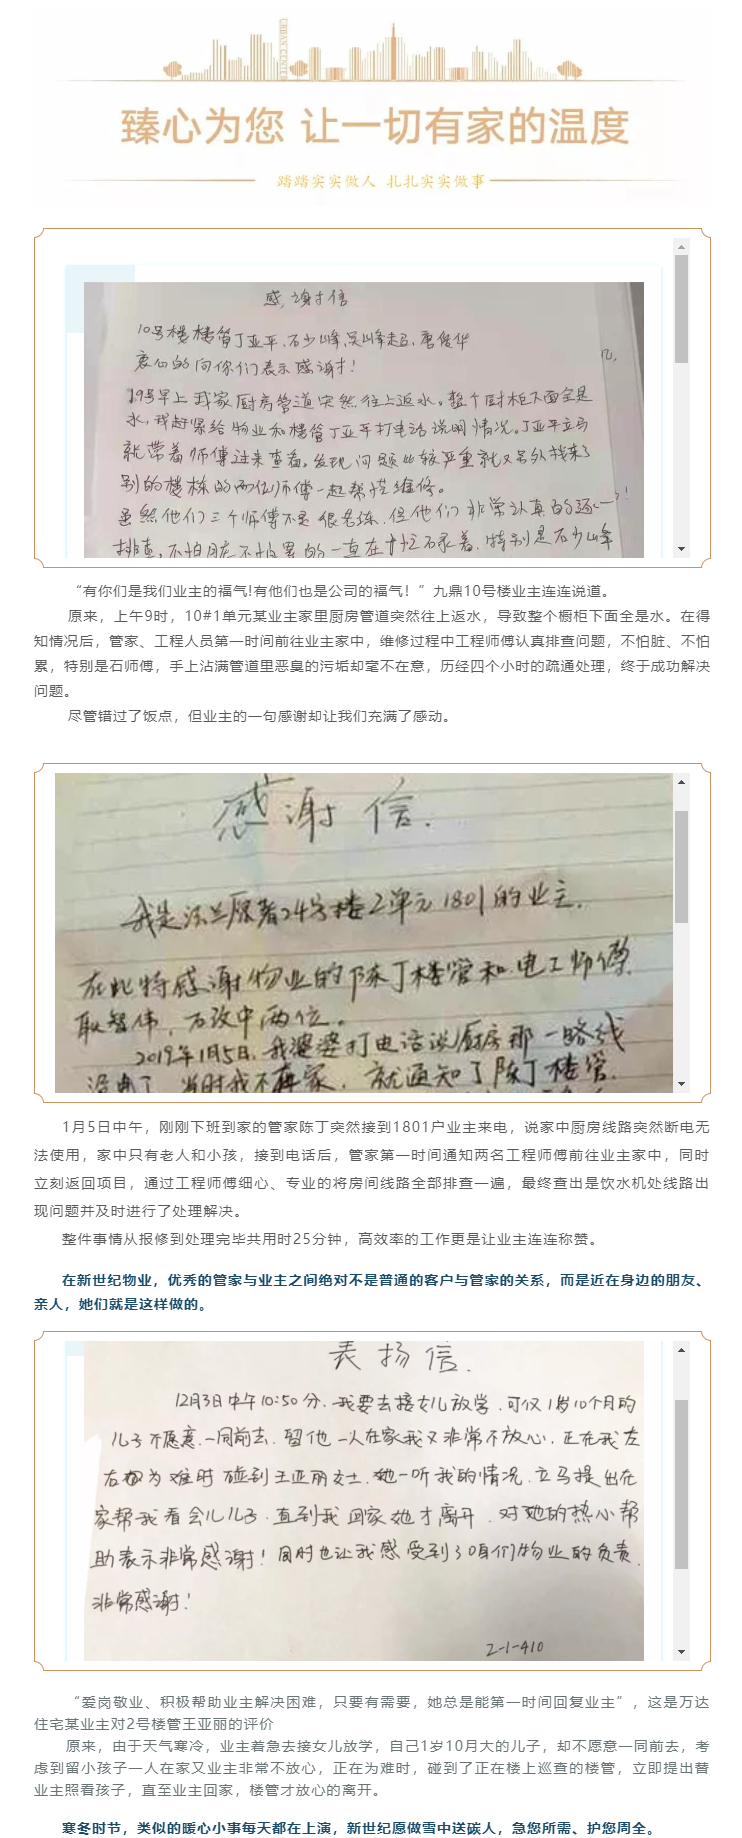 URBAN CENTER
臻心为您 让一切有家的温度
踏踏实实做人 扎扎实实做事
感谢信
10号楼楼管丁亚平、石少峰、吴峰起、唐俊华
衷心的向你们表示感谢!
19号早上我家厨房管道突然往上返水。整个厨柜下面全是
水,我赶紧给物业和楼管丁亚平打电话说明情况。丁亚平立马
就带着师傅过来查看。发现问题比较严重就又另外找来了
别的楼栋的两位师傅一起帮忙维修。
虽然他们三个师傅不是很老练,但他们非常认真的逐一
排查,不怕脏不怕累的一直在 特别是石少峰
“有你们是我们业主的福气!有他们也是公司的福气！”九鼎10号楼业主连连说道。
原来，上午9时，10#1单元某业主家里厨房管道突然往上返水，导致整个橱柜下面全是水。在得
知情况后，管家、工程人员第一时间前往业主家中，维修过程中工程师傅认真排查问题，不怕脏、不怕
累，特别是石师傅，手上沾满管道里恶臭的污垢却毫不在意，历经四个小时的疏通处理，终于成功解决
问题。
尽管错过了饭点，但业主的一句感谢却让我们充满了感动。
感谢信.
我是法兰原著24号楼2单元1801的业主.
在此特感谢物业的陈丁楼管和电工师傅
耿智伟, 石改中两位。
2019年1月5日,我婆婆打电话说厨房那一路线
没电了,当时我不再家,就通知了陈丁楼管.
1月5日中午，刚刚下班到家的管家陈丁突然接到1801户业主来电，说家中厨房线路突然断电无
法使用，家中只有老人和小孩，接到电话后，管家第一时间通知两名工程师傅前往业主家中，同时
立刻返回项目，通过工程师傅细心、专业的将房间线路全部排查一遍，最终查出是饮水机处线路出
现问题并及时进行了处理解决。
整件事情从报修到处理完毕共用时25分钟，高效率的工作更是让业主连连称赞。
在新世纪物业，优秀的管家与业主之间绝对不是普通的客户与管家的关系，而是近在身边的朋友、
亲人，她们就是这样做的。
表扬信.
12月3日中午10:50分.我要去接女儿放学.可仅1岁10个月的
儿子不愿意.一同前去.留他一人在家我又非常不放心.正在我左
右为难时碰到王亚丽女士.她一听我的情况.立马提出在
家帮我看会儿儿子.直到我回家她才离开.对她的热心帮
助表示非常感谢!同时也让我感受到了咱们物业的负责.
非常感谢!
2-1-410
“爱岗敬业、积极帮助业主解决困难，只要有需要，她总是能第一时间回复业主”，这是万达
住宅某业主对2号楼管王亚丽的评价
原来，由于天气寒冷，业主着急去接女儿放学，自己1岁10月大的儿子，却不愿意一同前去，考
虑到留小孩子一人在家又业主非常不放心，正在为难时，碰到了正在楼上巡查的楼管，立即提出替
业主照看孩子，直至业主回家，楼管才放心的离开。
寒冬时节，类似的暖心小事每天都在上演，新世纪愿做雪中送碳人，急您所需、护您周全。